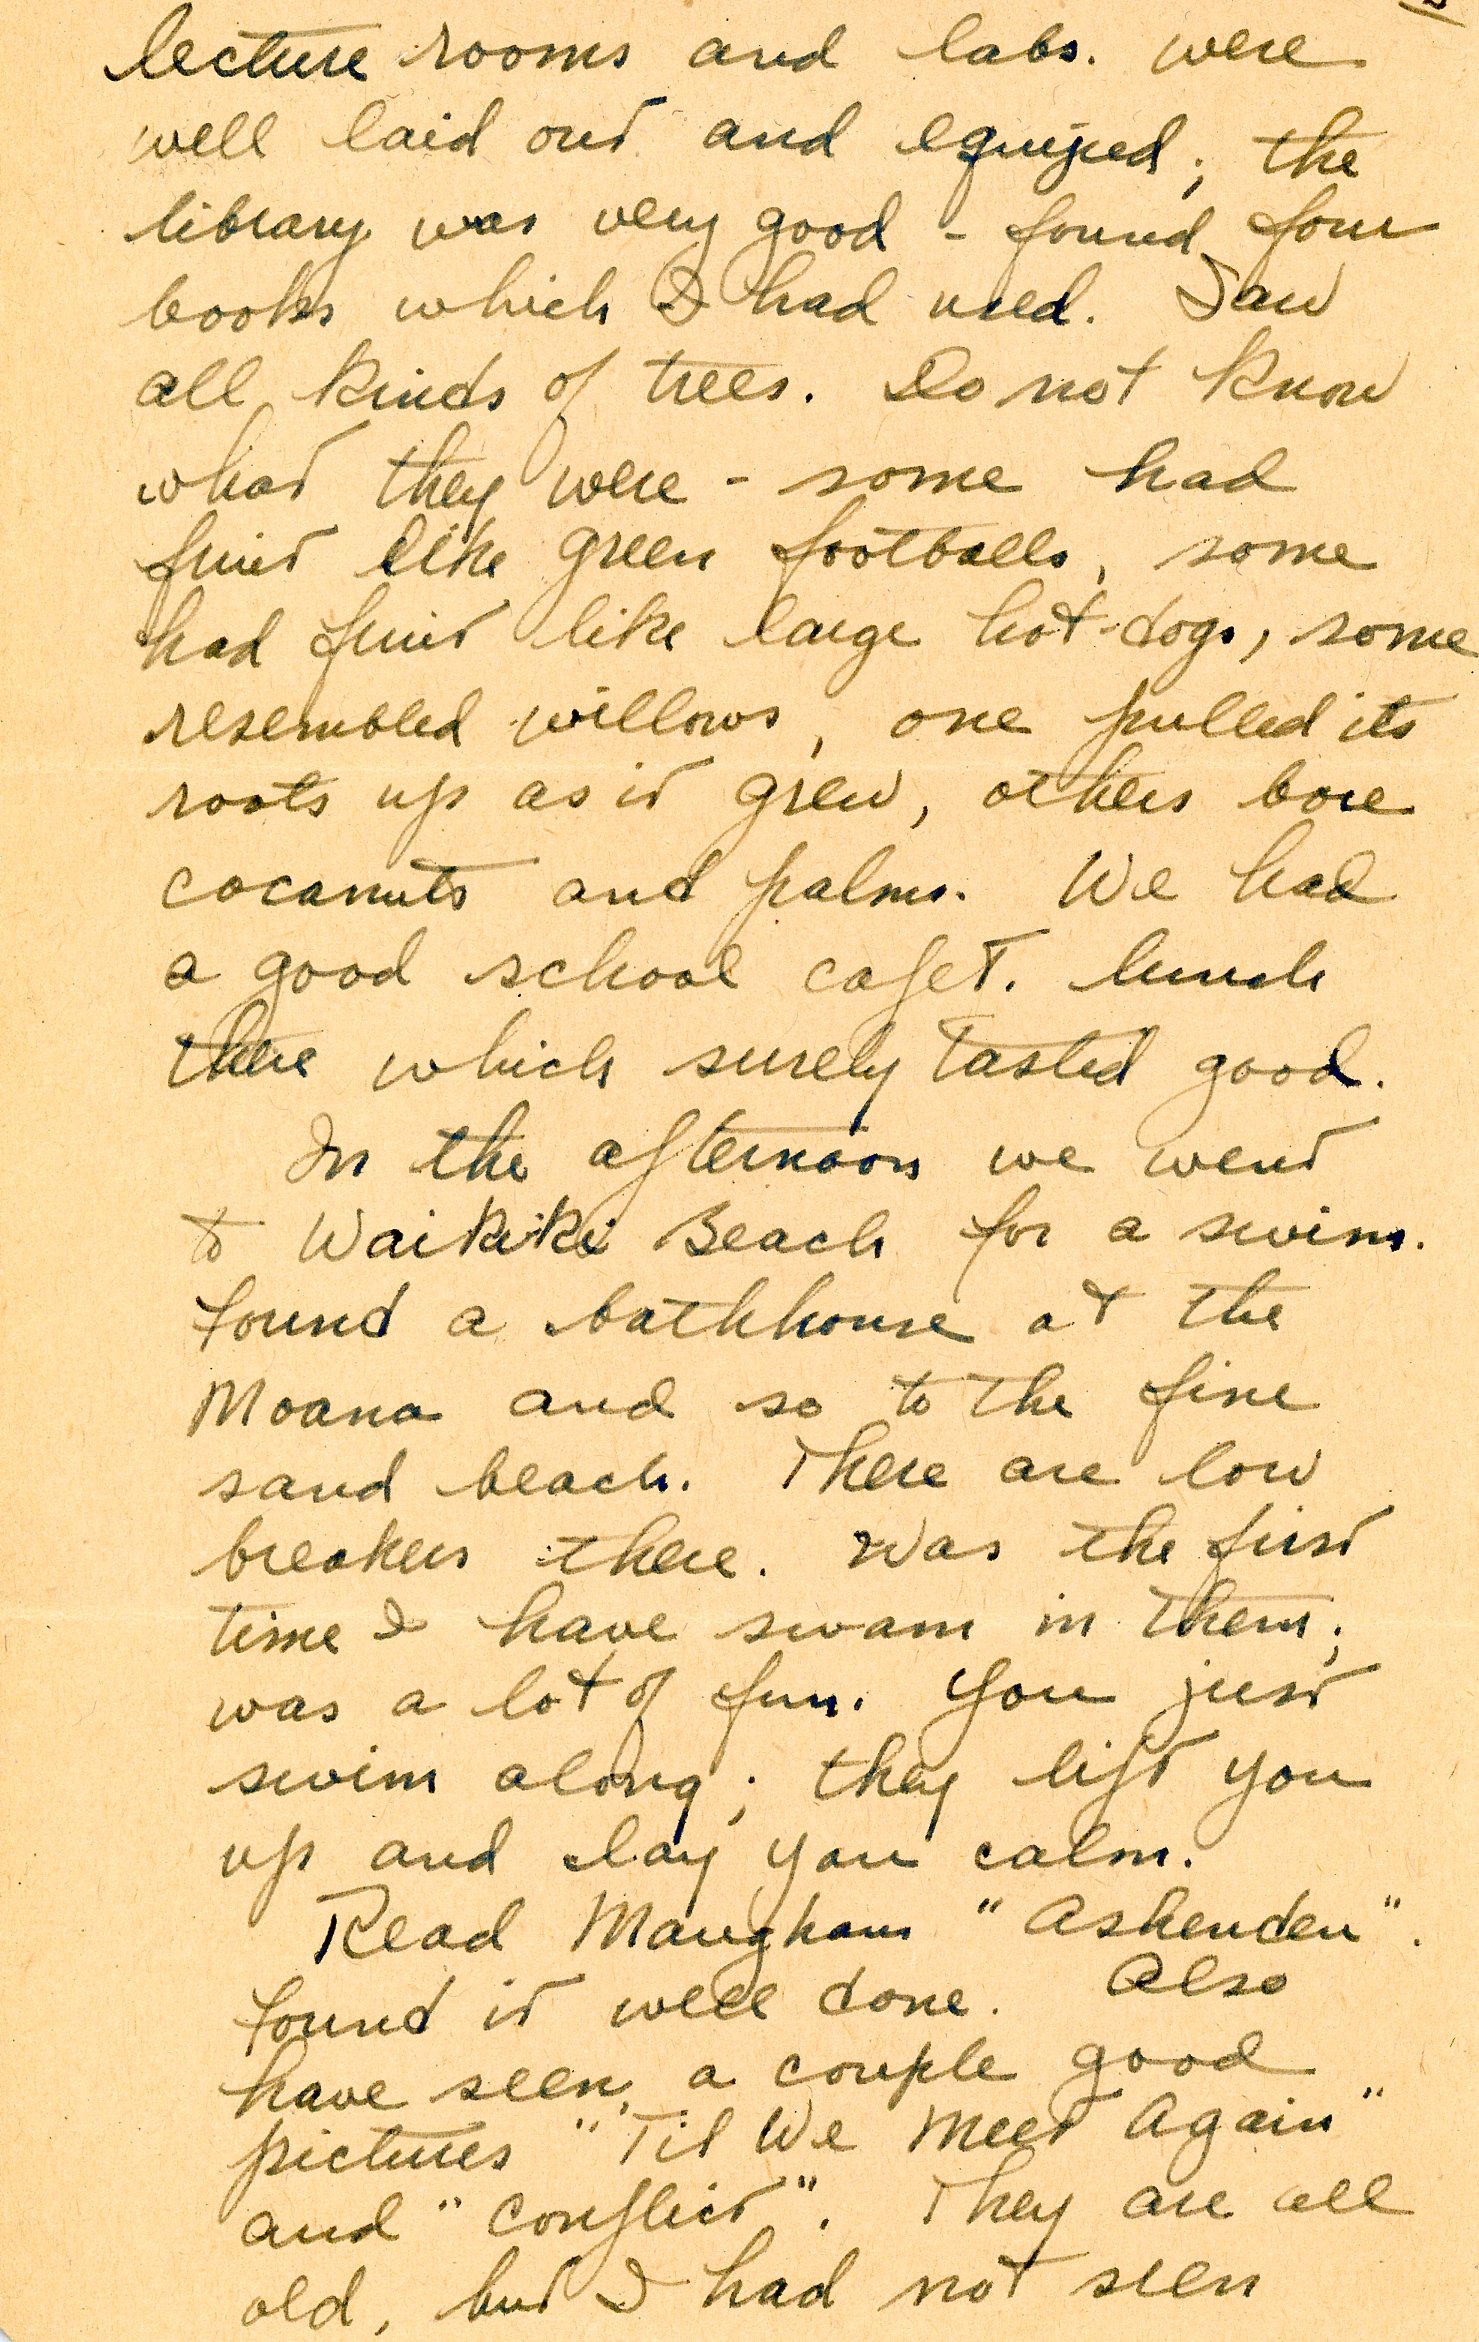 lecture rooms and labs. were
well laid out and equiped; the
library was very good - found four
books which I had used. Saw
all kinds of trees. Do not know
what they were - some had
fruit like green footballs, some
had fruit like large hot-dogs, some
resembled willows, one pulled its
roots up as it grew, others bore
cocanuts and palms. We had
a good school cafet. lunch
there which surely tasted good.
In the afternoon we went
to Waikiki Beach for a swim.
found a bathhouse at the
Moana and so to the fine
sand beach. There are low
breakers there. Was the first
time I have swam in them;
was a lot of fun. You just
swim along; they lift you
up and lay you calm.
Read Maugham "Ashenden".
found it well done. Also
have seen a couple good
pictures "Til We Meet Again"
and "Conflict". They are all
old, but I had not seen